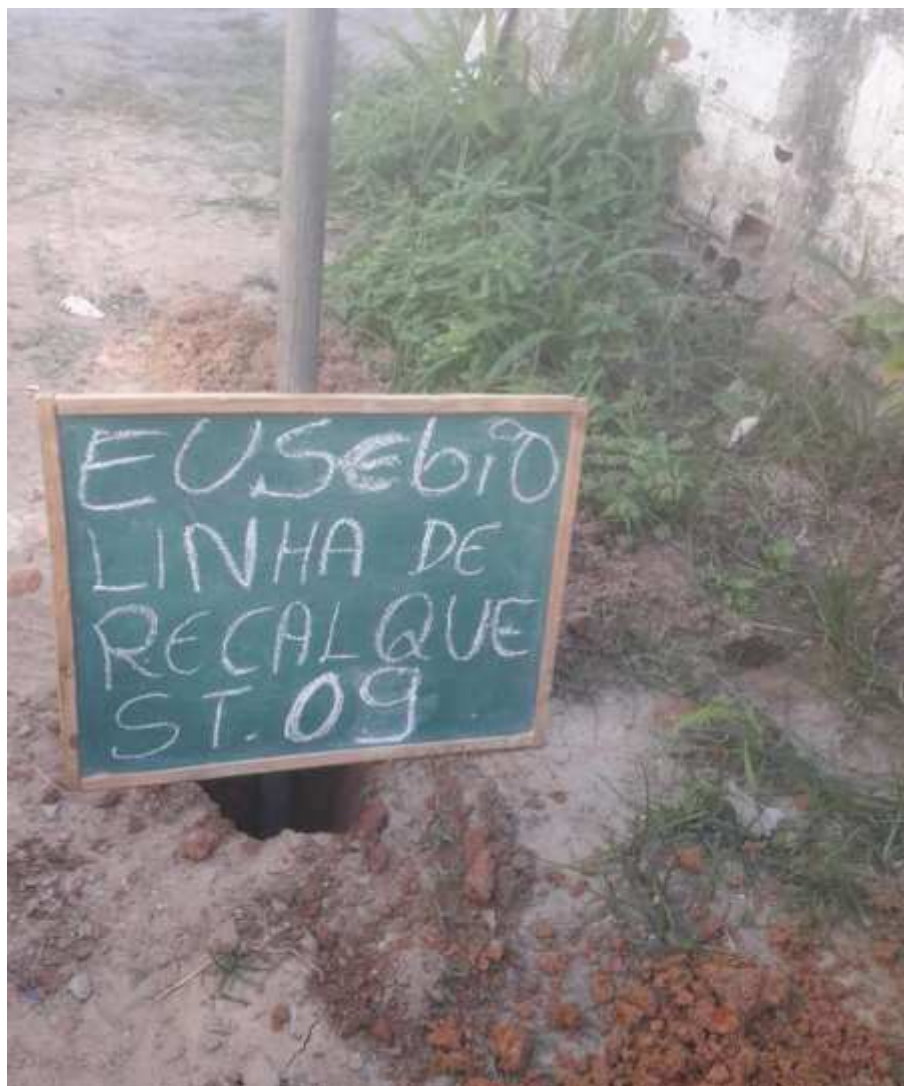 EUSEbiO
LINHA DE
RECALQUE
ST. 09